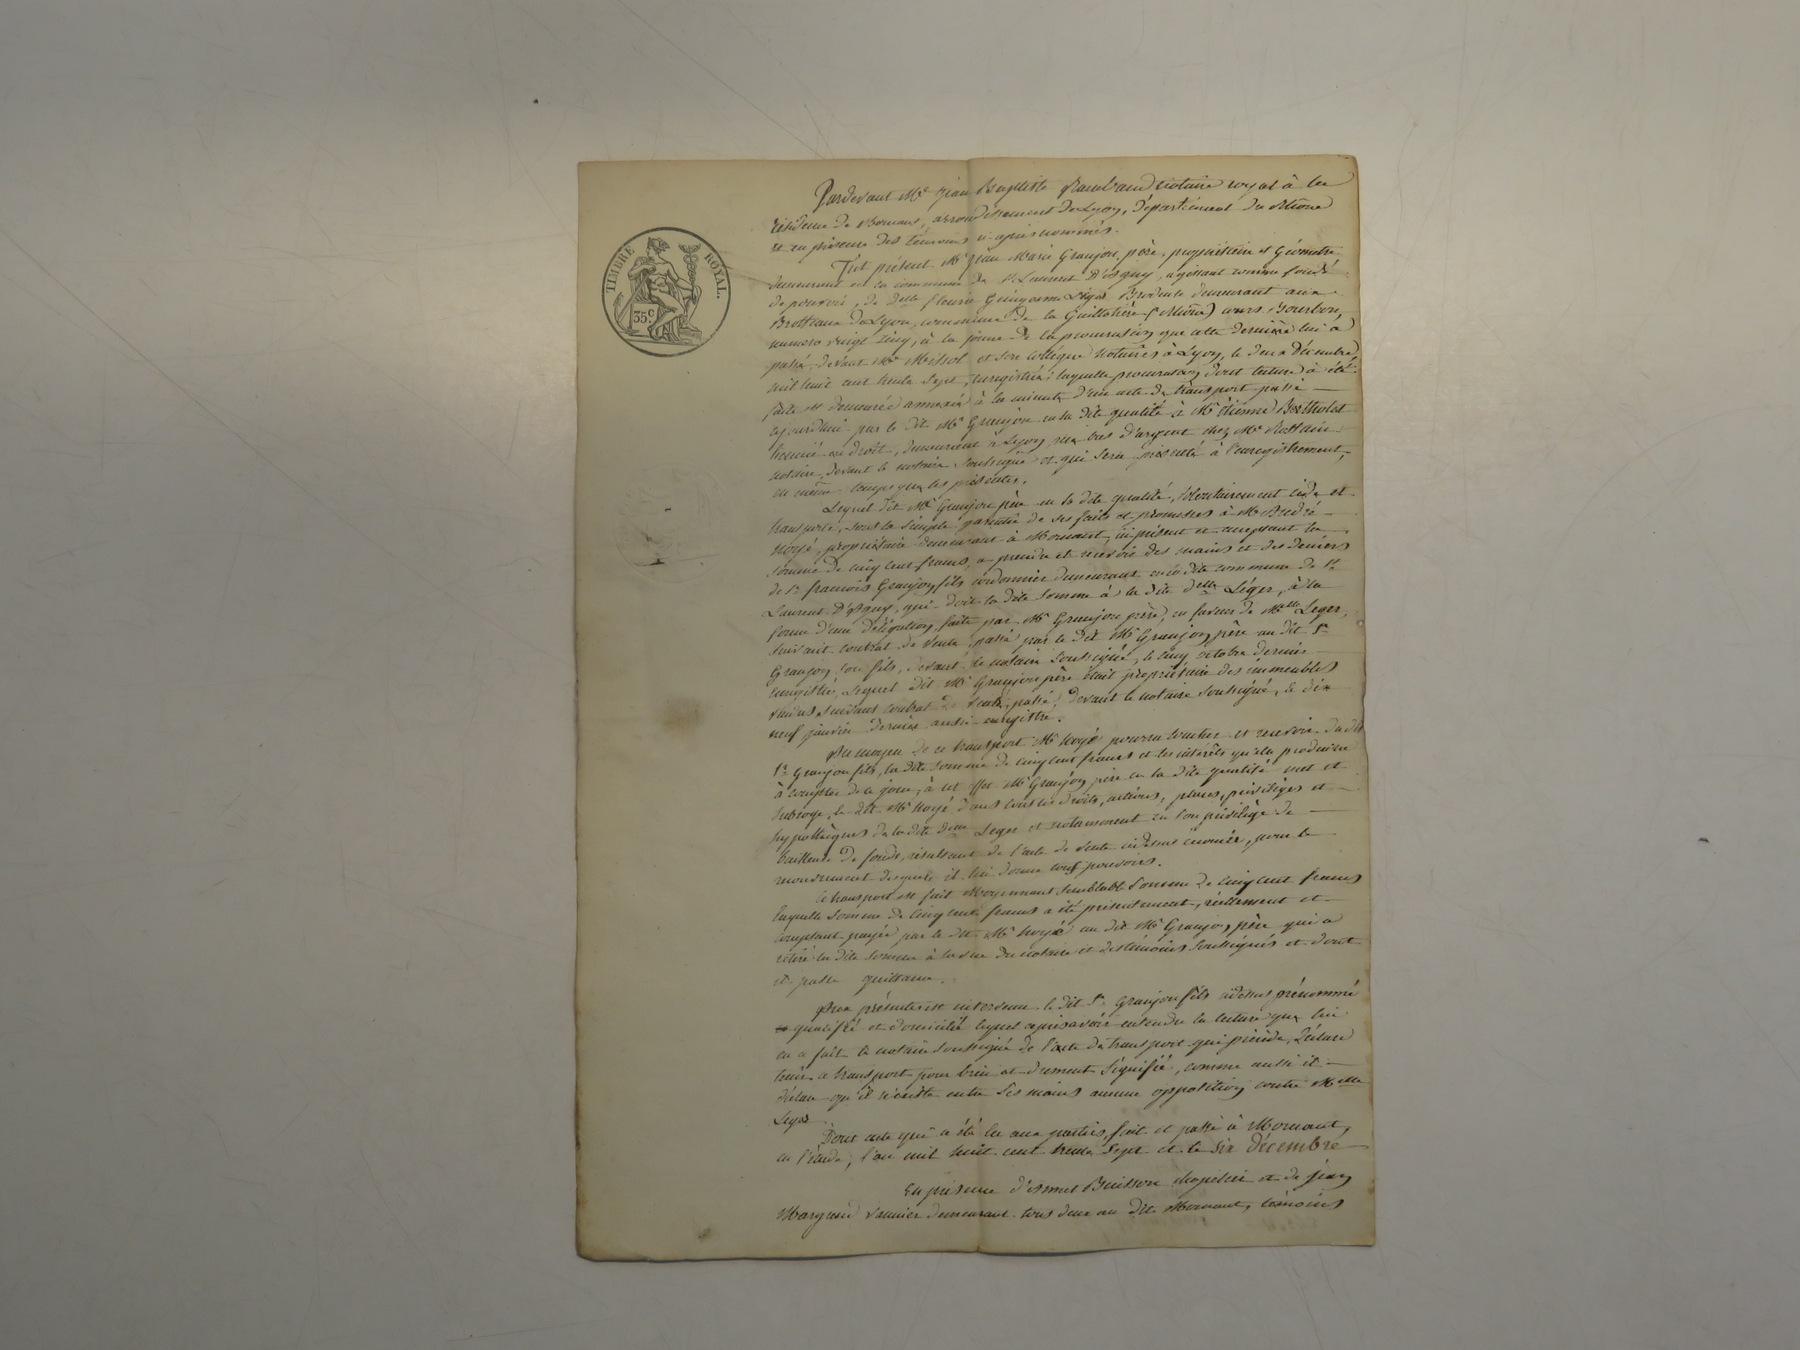 TIMBRE ROYAL.
35c
Pardevant Me Jean Baptiste notaire royal à la
résidence de Mornant, arrondissement de Lyon, département du Rhône
et en présence des témoins ci-après nommés.
Fut présent Mr Jean Marie Granjon père, propriétaire et Géomètre
demeurant en la commune de St Laurent D'agny, agissant comme fondé
de pouvoir, de delle fleurie Léger Brodeuse demeurant aux
Brotteaux de Lyon, commune de la Guillotière (Rhône) cours Bourbon,
numero vingt cinq, à la forme de la procuration que cette dernière lui a
passé, devant Me Missol et son collégue notaires à Lyon, le deux Décembre,
mil huit cent trente sept, enregistrée; laquelle procuration dont lecture à été
faite est demeurée annexée à la minute d'un acte de transport passé
ajourd'hui par le dit Mr Granjon en sa dite qualité à Mr étienne Bertholet
licencié en droit, demeurant à Lyon rue bas d'argent chez Me
notaire, devant le notaire soussigné et qui sera présenté à l'enregistrement,
en même temps que les présentes.
Lequel dit Mr Granjon père en la dite qualité, volontairement cède et
transporte, sous la simple garantie de ses faits et promesses à Mr André
Noyé, propriétaire demeurant à Mornant, ici présent et acceptant la
somme de cinq cent francs, a prendre et recevoir des mains et des deniers
de Sr francois Granjon fils cordonnier demeurant en la dite commune de St
Laurent D'agny, qui doit la dite somme à la dite delle Léger, à la
forme d'une délégation faite par Mr Granjon père, en faveur de Melle Leger,
suivant contrat de vente passé par le dit Mr Granjon père au dit Sr
Granjon son fils, devant le notaire soussigné, le cinq octobre dernier
enregistré, lequel dit Mr Granjon père était propriétaire des immeubles
vendus suivant contrat de vente passé, devant le notaire soussigné, le dix
neuf janvier dernier aussi enregistré.
Au moyen de ce transport Mr Noyé pourra toucher et recevoir du dit
Sr Granjon fils, la dite somme de cinq cent francs et les intérêts qu'elle produira
à compter de ce jour, à cet effet Mr Granjon père en la dite qualité met et
subroge, le dit Mr Noyé dans tous les droits, actions, places, priviléges et
hypothèques de la dite delle Leger et notamment en son privilège de
bailleur de fonds, résultant de l'acte de vente cidessus énoncée, pour le
recouvrement desquels il lui donne tous pouvoirs.
Ce transport est fait Moyennant semblable somme de cinq cent francs
laquelle somme de cinq cent francs a été présentement, réellement et
comptant payée par le dit Mr Noyé au dit Mr Granjon père qui a
retiré la dite somme à la vue du notaire et des témoins soussignés et dont
il passe quittance.
Aux présentes est intervenu le dit Sr Granjon fils cidessus prénommé
qualifié et domicilié lequel après avoir entendu la lecture que lui
en a fait le notaire soussigné de l'acte de transport qui précède, déclare
tenir ce transport pour bien et dument signifié, comme aussi il
déclare qu'il n'éxiste entre ses mains aucune opposition contre Melle
Leger.
Dont acte qui a été lu aux parties, fait et passé à Mornant,
en l'étude, l'an mil huit cent trente sept et le six décembre
En présence d'Esmet Buisson chapelier et de jean
Vannier demeurant tous deux au dit Mornant, témoins